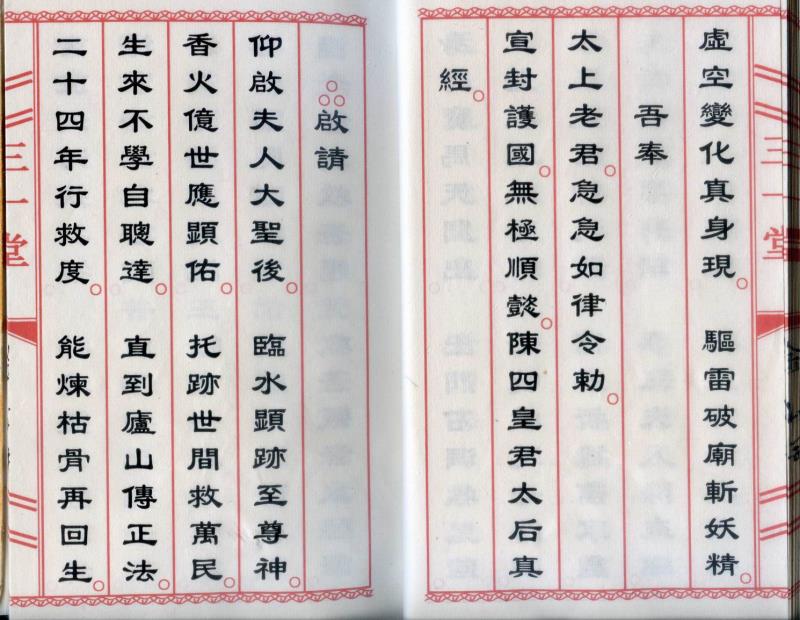 虛空變化真身現。驅雷破廟斬妖精。
吾奉
太上老君。急急如律令勅。
宣封護國。無極順懿。陳四皇君太后真
經。
啟請
仰啟夫人大聖後。臨水顯跡至尊神
香火億世應顯佑。托跡世間救萬民。
生來不學自聰達。直到廬山傳正法。
二十四年行救度。能煉枯骨再回生
三一堂
三一堂